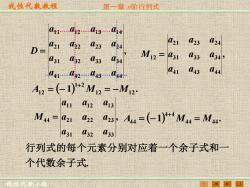 线性代数多媒体
第一章 n阶行列式
D = | a11 a12 a13 a14 |
| a21 a22 a23 a24 |
| a31 a32 a33 a34 |
| a41 a42 a43 a44 |,
M12 = | a21 a23 a24 |
| a31 a33 a34 |
| a41 a43 a44 |,
A12 = (−1)^{1+2} M12 = −M12.
M44 = | a11 a12 a13 |
| a21 a22 a23 |
| a31 a32 a33 |,
A44 = (−1)^{4+4} M44 = M44.
行列式的每个元素分别对应着一个余子式和一
个代数余子式.